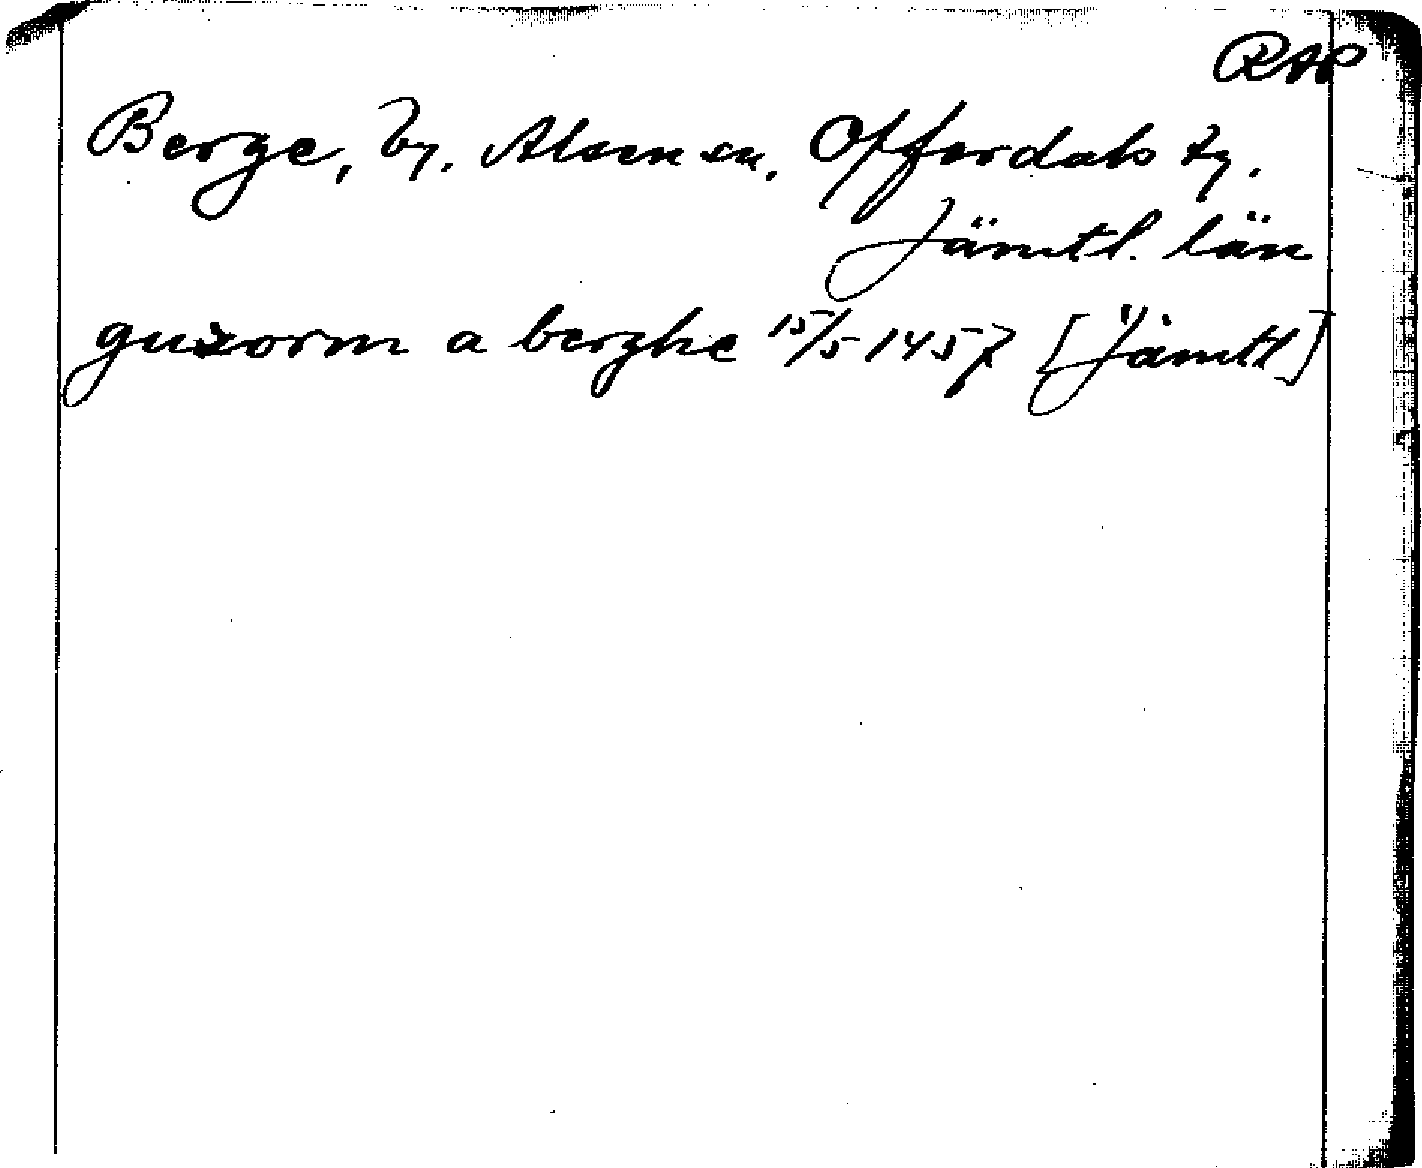 RAP
Berge, by. Alsen sn. Offerdals tg.
Jämtl. län
guzorm a berghe 15/5 1457 [Jämtl]